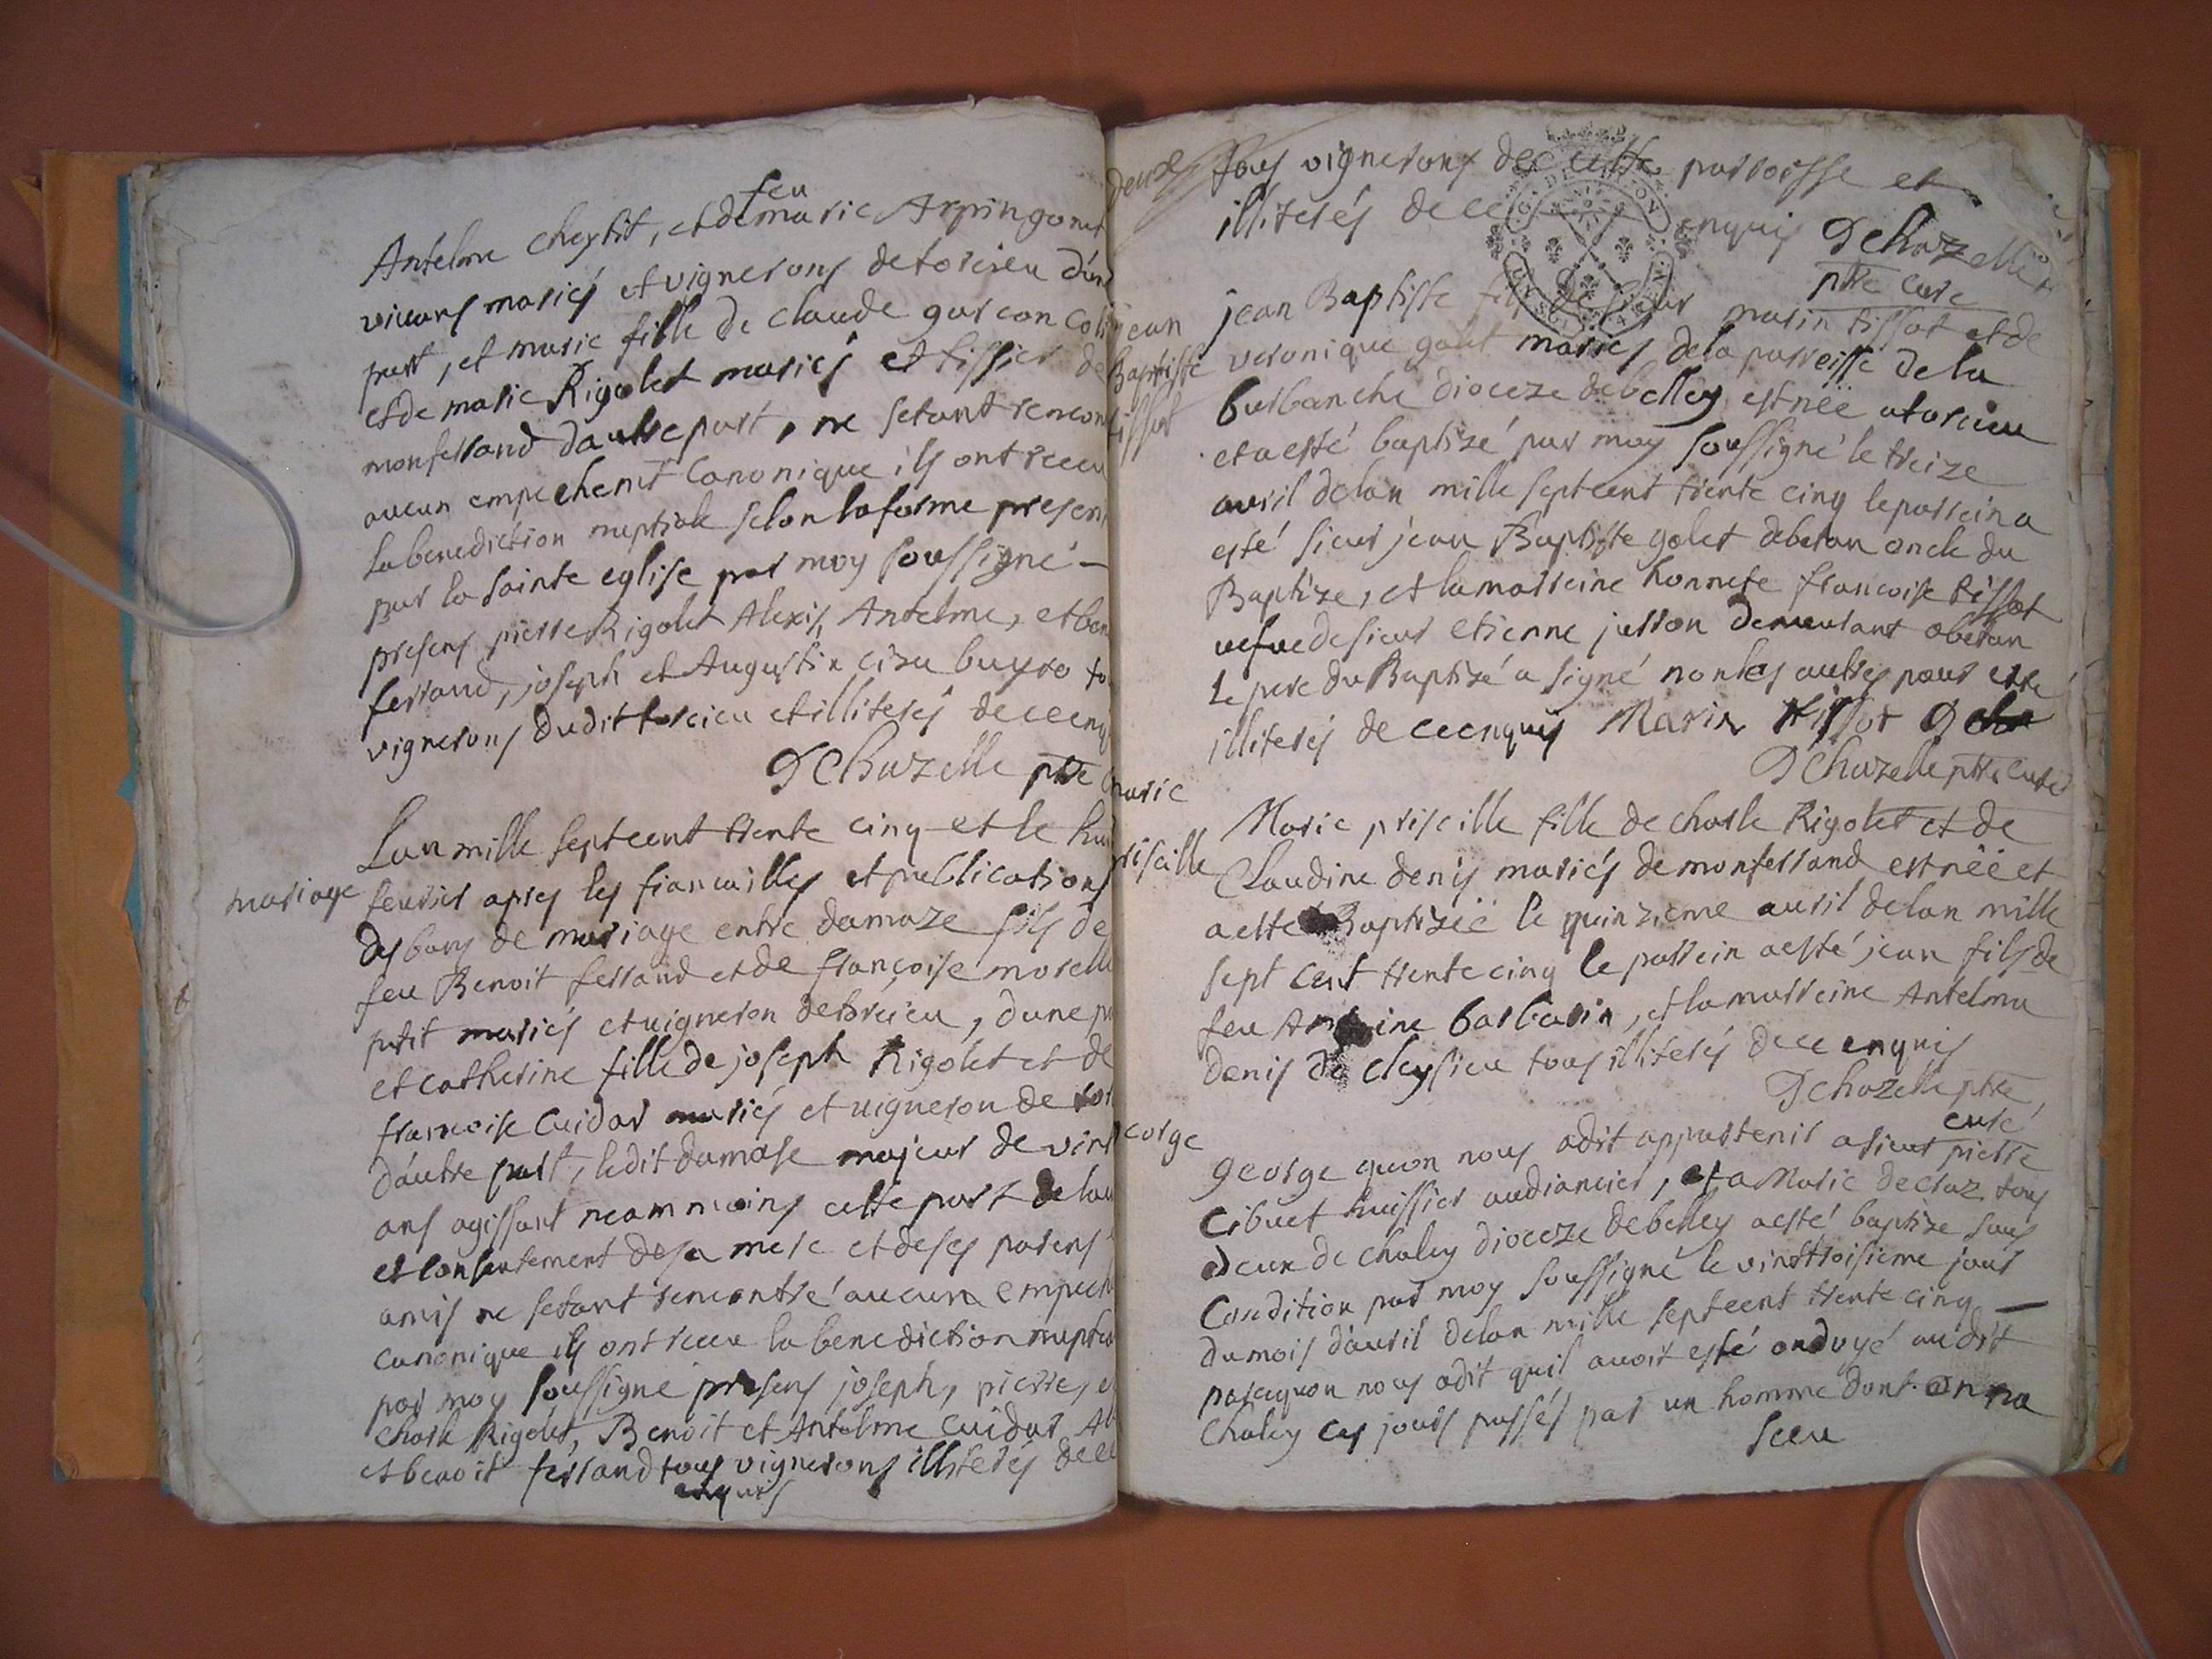 feu
Antelme cheytit, et de marie Arpin gonet
vivans mariés et vignerons de torcieu d'un
part, et marie fille de claude garcon
et de marie Rigolet mariés et tissier de
monferrand dautre part, ne setant rencon
aucun empechemt Canonique ils ont receu
la benediction nuptiale selon la forme prescri
par la sainte eglise par moy soussigné
presens pierre Rigolet Alexis, Antelme, et ben
ferrand, joseph et Augustin buyro to
vignerons dudit torcieu et illiterés de ce enq
DChazelle ptre
mariage
Lan mille septcent trente cinq et le hui
fevrier apres les fiancailles et publications
des bans de mariage entre damaze fils de
feu Benoit ferrand et de françoise morelle
petit mariés et vigneron detorcieu, dune pa
et catherine fille de joseph Rigolet et de
francoise Cuidar mariés et vigneron de tor
dautre part, ledit damase majeur de vint
ans agissant neammoins cette part de lau
et consentement de sa mere et de ses parens
amis ne setant rencontré aucun empech
canonique ils ont receu la benediction nuptia
par moy soussigné presens joseph, pierre, e
charle Rigolet, Benoit et Antelme Cuidar, Al
et benoit ferrand tous vignerons illiterés de ce
enquis
deux
tous vignerons de cette parroisse et
illiterés de ce enquis DChazelle
ptre curé
jean
Baptiste
tissot
jean Baptiste fils de sieur marin tissot et de
veronique golet mariés dela parroisse de la
burbanche dioceze debelley est née a torcieu
et a esté baptizé par moy soussigné le treize
avril delan mille septcent trente cinq le parrein a
esté sieur jean Baptiste golet deberan oncle du
Baptize, et la marreine honnete francoise tissot
vefve de sieur etienne juson demeurant aberan
Le pere du Baptizé a signé non les autres pour estre
illiterés de ce enquis Marin tissot DCha
DChazelle ptre curé
marie
priscille
Marie priscille fille de charle Rigolet et de
Claudine denis mariés de monferrand est née et
a esté Baptizéé le quinzieme avril delan mille
sept cent trente cinq le parrein a esté jean fils de
feu Antoine barbarin, et la marreine Antelma
denis de cleysieu tous illiterés de ce enquis
DChazelle ptre
curé
George
george quon nous adit appartenir a sieur pierre
Cibuet huissier audiancier, et a Marie decraz tous
deux de chaley dioceze debelley a esté baptize sous
Condition par moy soussigné le vinttroisieme jour
du mois davril delan mille septcent trente cinq
parcequon nous adit quil avoit esté ondoyé audit
Chaley ces jours passés par un homme dont on na
sceu